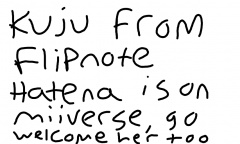 Kuju from
Flipnote
Hatena is on
miiverse, go
welcome her too